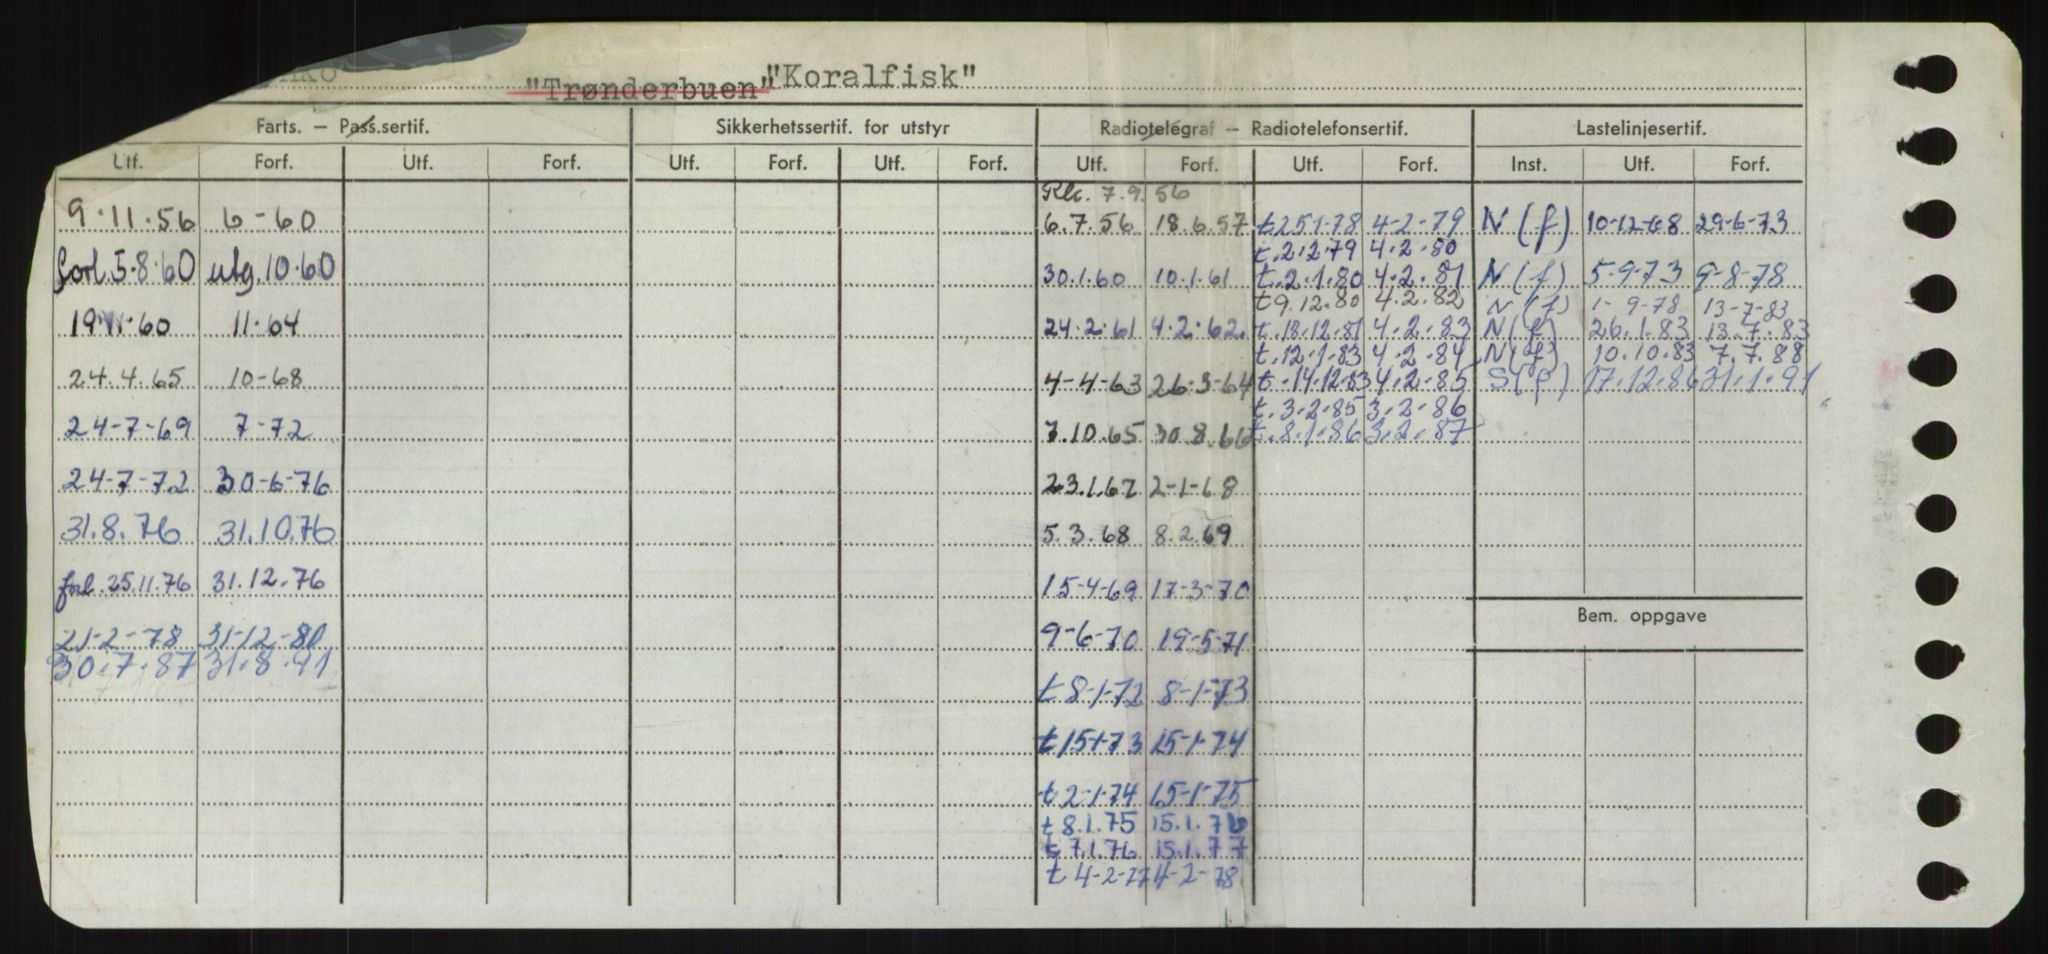 "Trønderbuen" "Koralfisk"
Farts. — Pass.sertif. Sikkerhetssertif. for utstyr Radiotelegraf — Radiotelefonsertif. Lastelinjesertif.
Utf. Forf. Utf. Forf. Utf. Forf. Utf. Forf. Utf. Forf. Utf. Forf. Inst. Utf. Forf.
7.9.56
9.11.56 6-60 6.7.56 18.6.57 t 25.1-78 4-2-79 N (f) 10-12-68 29-6-73
t.2.2.79 4.2.80
forl.5.8.60 utg.10.60 30.1.60 10.1.61 t.2.1.80 4.2.81 N (f) 5-9-73 9-8-78
t9.12.80 4.2.82 N (f) 1-9-78 13-7-83
19.11.60 11.64 24.2.61 4.2.62. t.18.12.81 4.2.83 N (f) 26.1.83 13.7.83
t.12.1.83 4.2.84 N (f) 10.10.83 7.7.88
24.4.65 10-68 4-4-63 26-3-64 t.14.12.83 4.2.85 S (f) 17.12.86 31.1.91
t.3.2.85 3.2.86
24-7-69 7-72 7.10.65 30.8.66 t.8.1.86 3.2.87
24-7-72 30-6-76 23.1.67 2-1-68
31.8.76 31.10.76 5.3.68 8.2.69
forl.25.11.76 31.12.76 15-4-69 17-3-70
Bem. oppgave
21-2-78 31-12-80 9-6-70 19-5-71
30.7.87 31.8.91
t 8-1-72 8-1-73
t 15-1-73 15-1-74
t 2-1-74 15-1-75
t 8.1.75 15.1.76
t 7.1.76 15.1.77
t 4-2-77 4-2-78